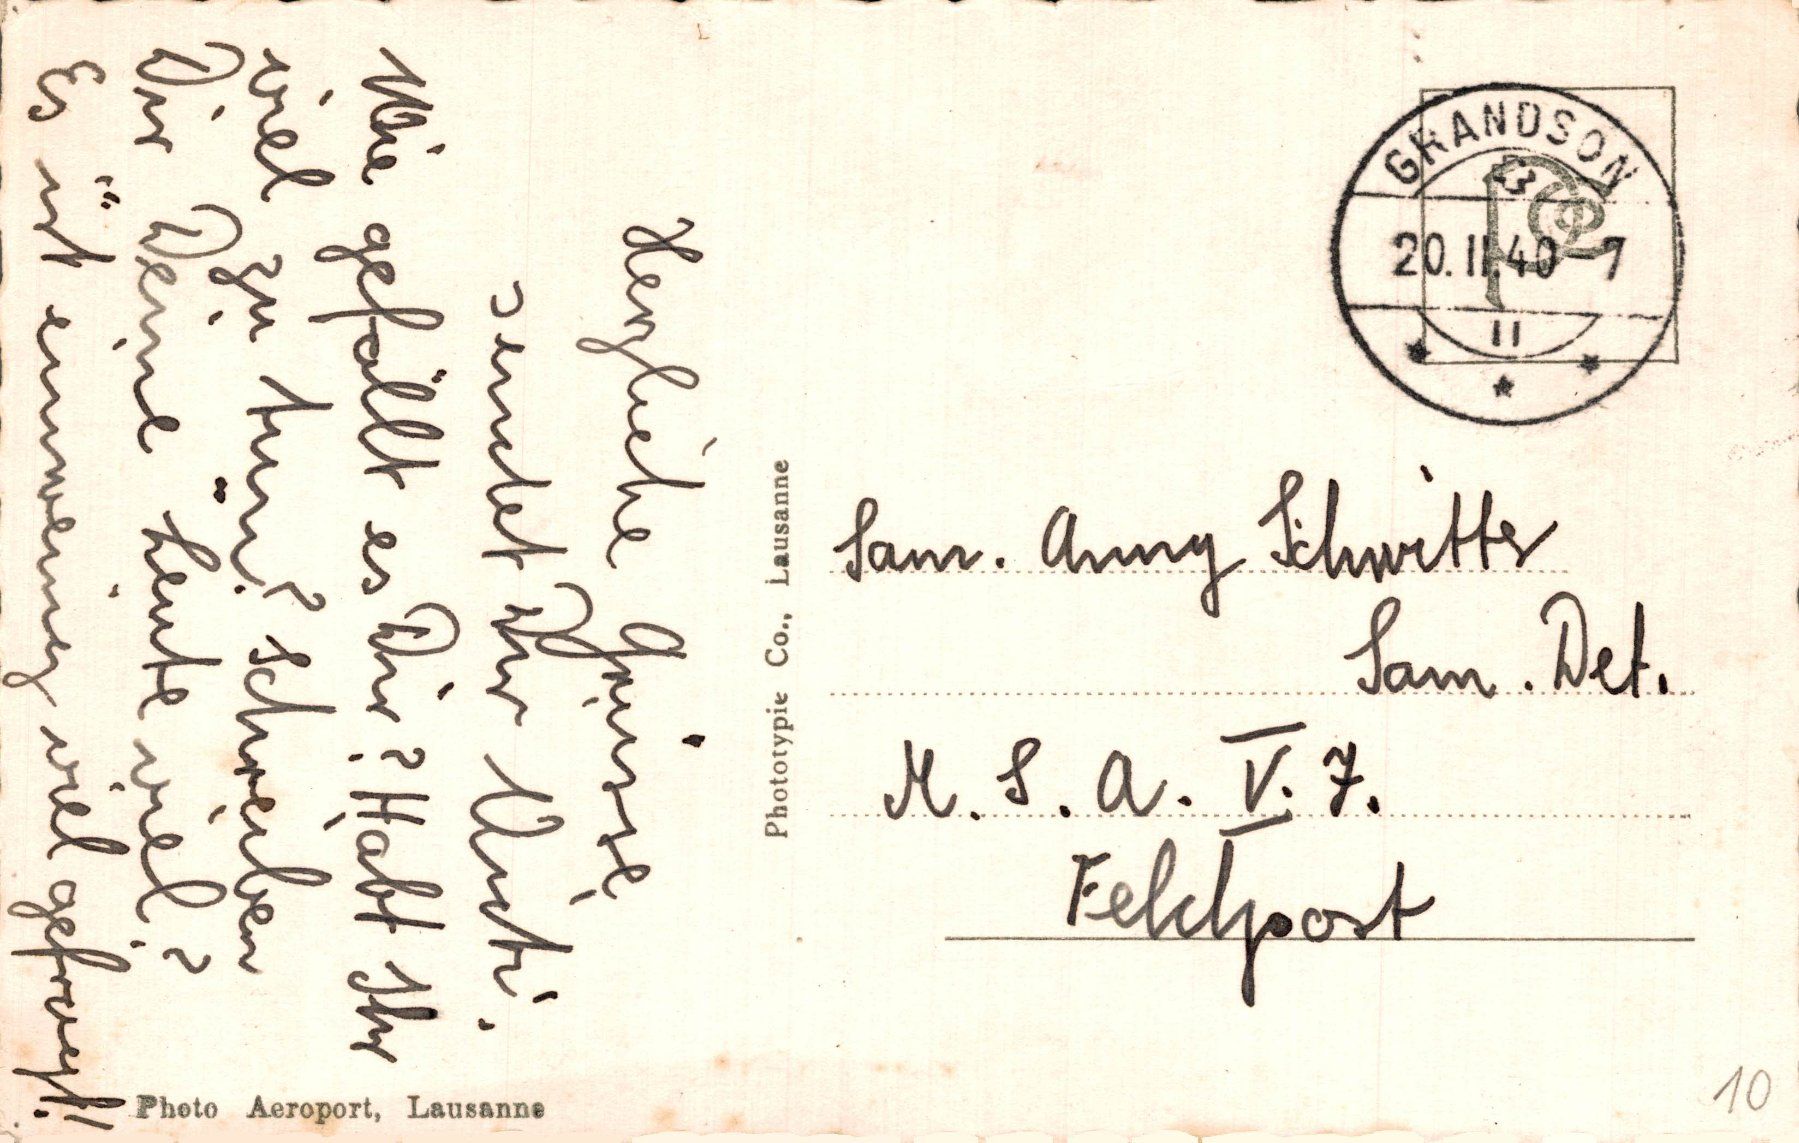 Herzliche Grüsse
sendet Dir
Wie gefällt es Dir? Habt Ihr
viel zu tun? Schreiben
Dir Deine Leute viel?
Es ist einwenig viel gefragt!!
Photo Aeroport, Lausanne
Phototypie Co., Lausanne
GRANDSON
23
20.II.40-7
II
Sam. Anny Schwitter
Sam. Det.
M. S. A. V. 7.
Feldpost
10